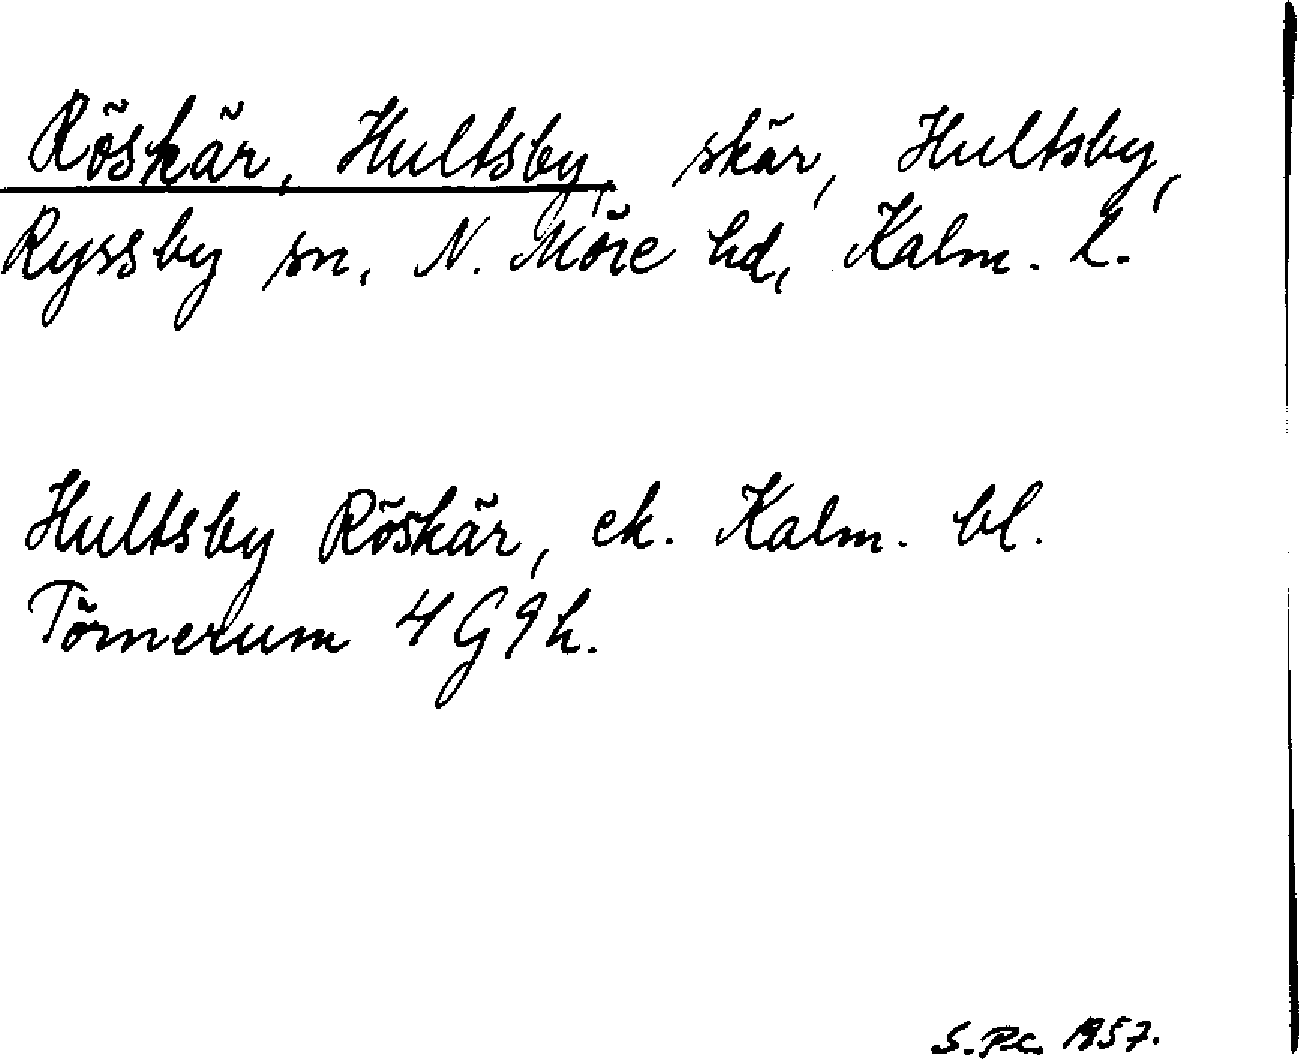 Röskär, Hultsby, skär, Hultsby,
Ryssby sn, N. Möre hd, Kalm. l.
Hultsby Röskär, ek. Kalm. bl.
Törnerum 4G9h.
S.Pc. 1957.